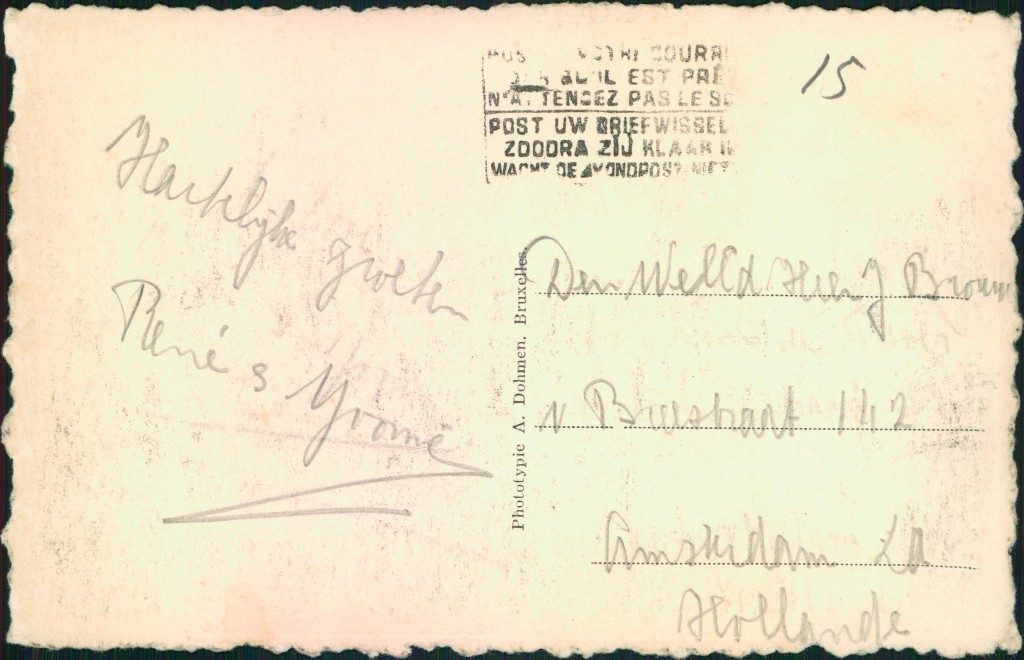 VOTRE COURRI
EST PRÊ
N'ATTENDEZ PAS LE SO
POST UW BRIEFWISSEL
ZOODRA ZIJ KLAAR I
WACHT DE AVONDPOST NIET
15
Hartelijke groeten
René & Yvonne
Phototypie A. Dohmen. Bruxelles.
Den Heer J
142
Amsterdam Zd
Hollande